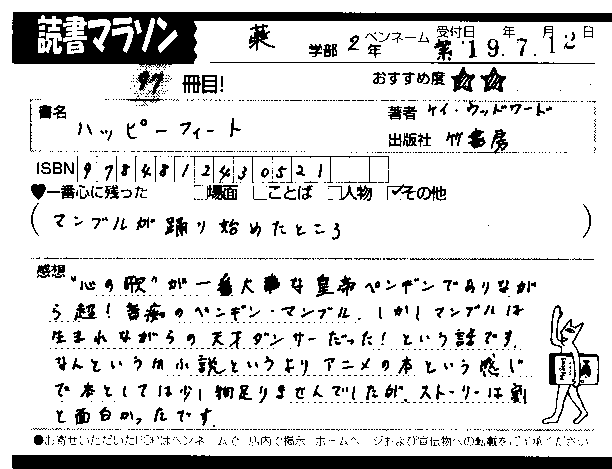 読書マラソン 薬 学部 2年 ペンネーム 紫 受付日 '19年 7月 12日
97 冊目! おすすめ度 ☆☆
書名 ハッピーフィート
著者 ケイ・ウッドワード
出版社 竹書房
ISBN 9784812430521
♥一番心に残った □場面 □ことば □人物 ☑その他
(マンブルが踊り始めたところ)
感想 "心の歌"が一番大事な皇帝ペンギンでありなが
ら超!音痴のペンギン・マンブル。しかしマンブルは
生まれながらの天才ダンサーだった!という話です。
なんというか小説というよりアニメの本という感じ
で本としては少し物足りませんでしたが、ストーリーは割
と面白かったです。
●お寄せいただいたPOPはペンネームで、店内で掲示、ホームページおよび宣伝物への転載をご了承ください